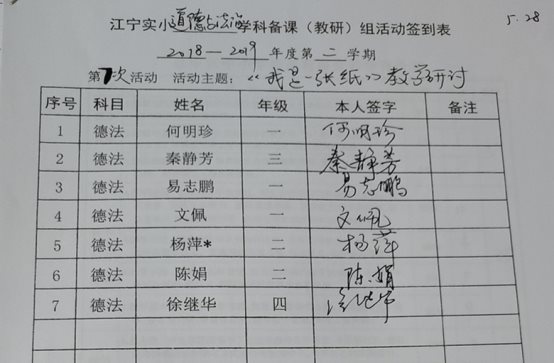 江宁实小道德与法治学科备课（教研）组活动签到表
5.28
2018—2019年度第二学期
第7次活动 活动主题：《我是一张纸》教学研讨
序号 科目 姓名 年级 本人签字 备注
1 德法 何明珍 一 何明珍
2 德法 秦静芳 三 秦静芳
3 德法 易志鹏 一 易志鹏
4 德法 文佩 一 文佩
5 德法 杨萍* 二 杨萍
6 德法 陈娟 二 陈娟
7 德法 徐继华 四 徐继华